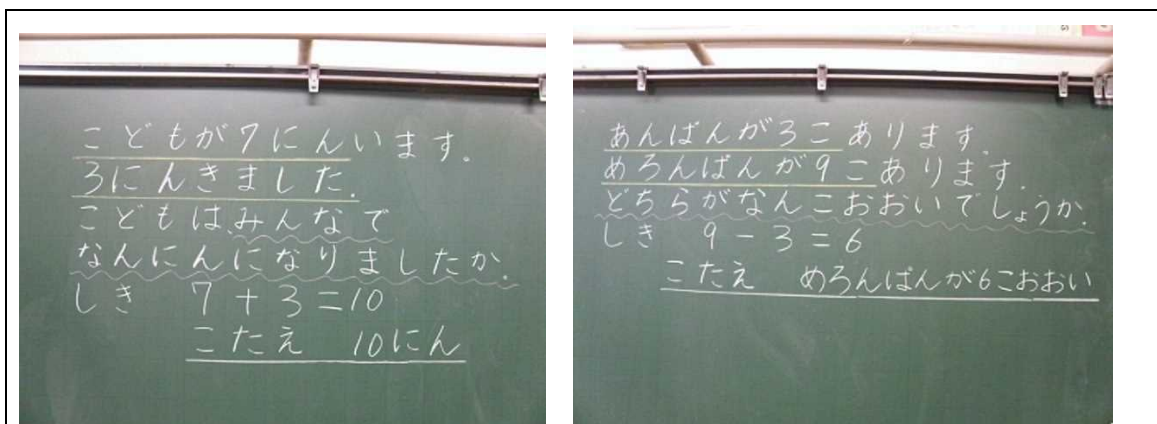 こどもが7にんいます。
3にんきました。
こどもは、みんなで
なんにんになりましたか。
しき 7+3=10
こたえ 10にん
あんぱんが3こあります。
めろんぱんが9こあります。
どちらがなんこおおいでしょうか。
しき 9-3=6
こたえ めろんぱんが6こおおい